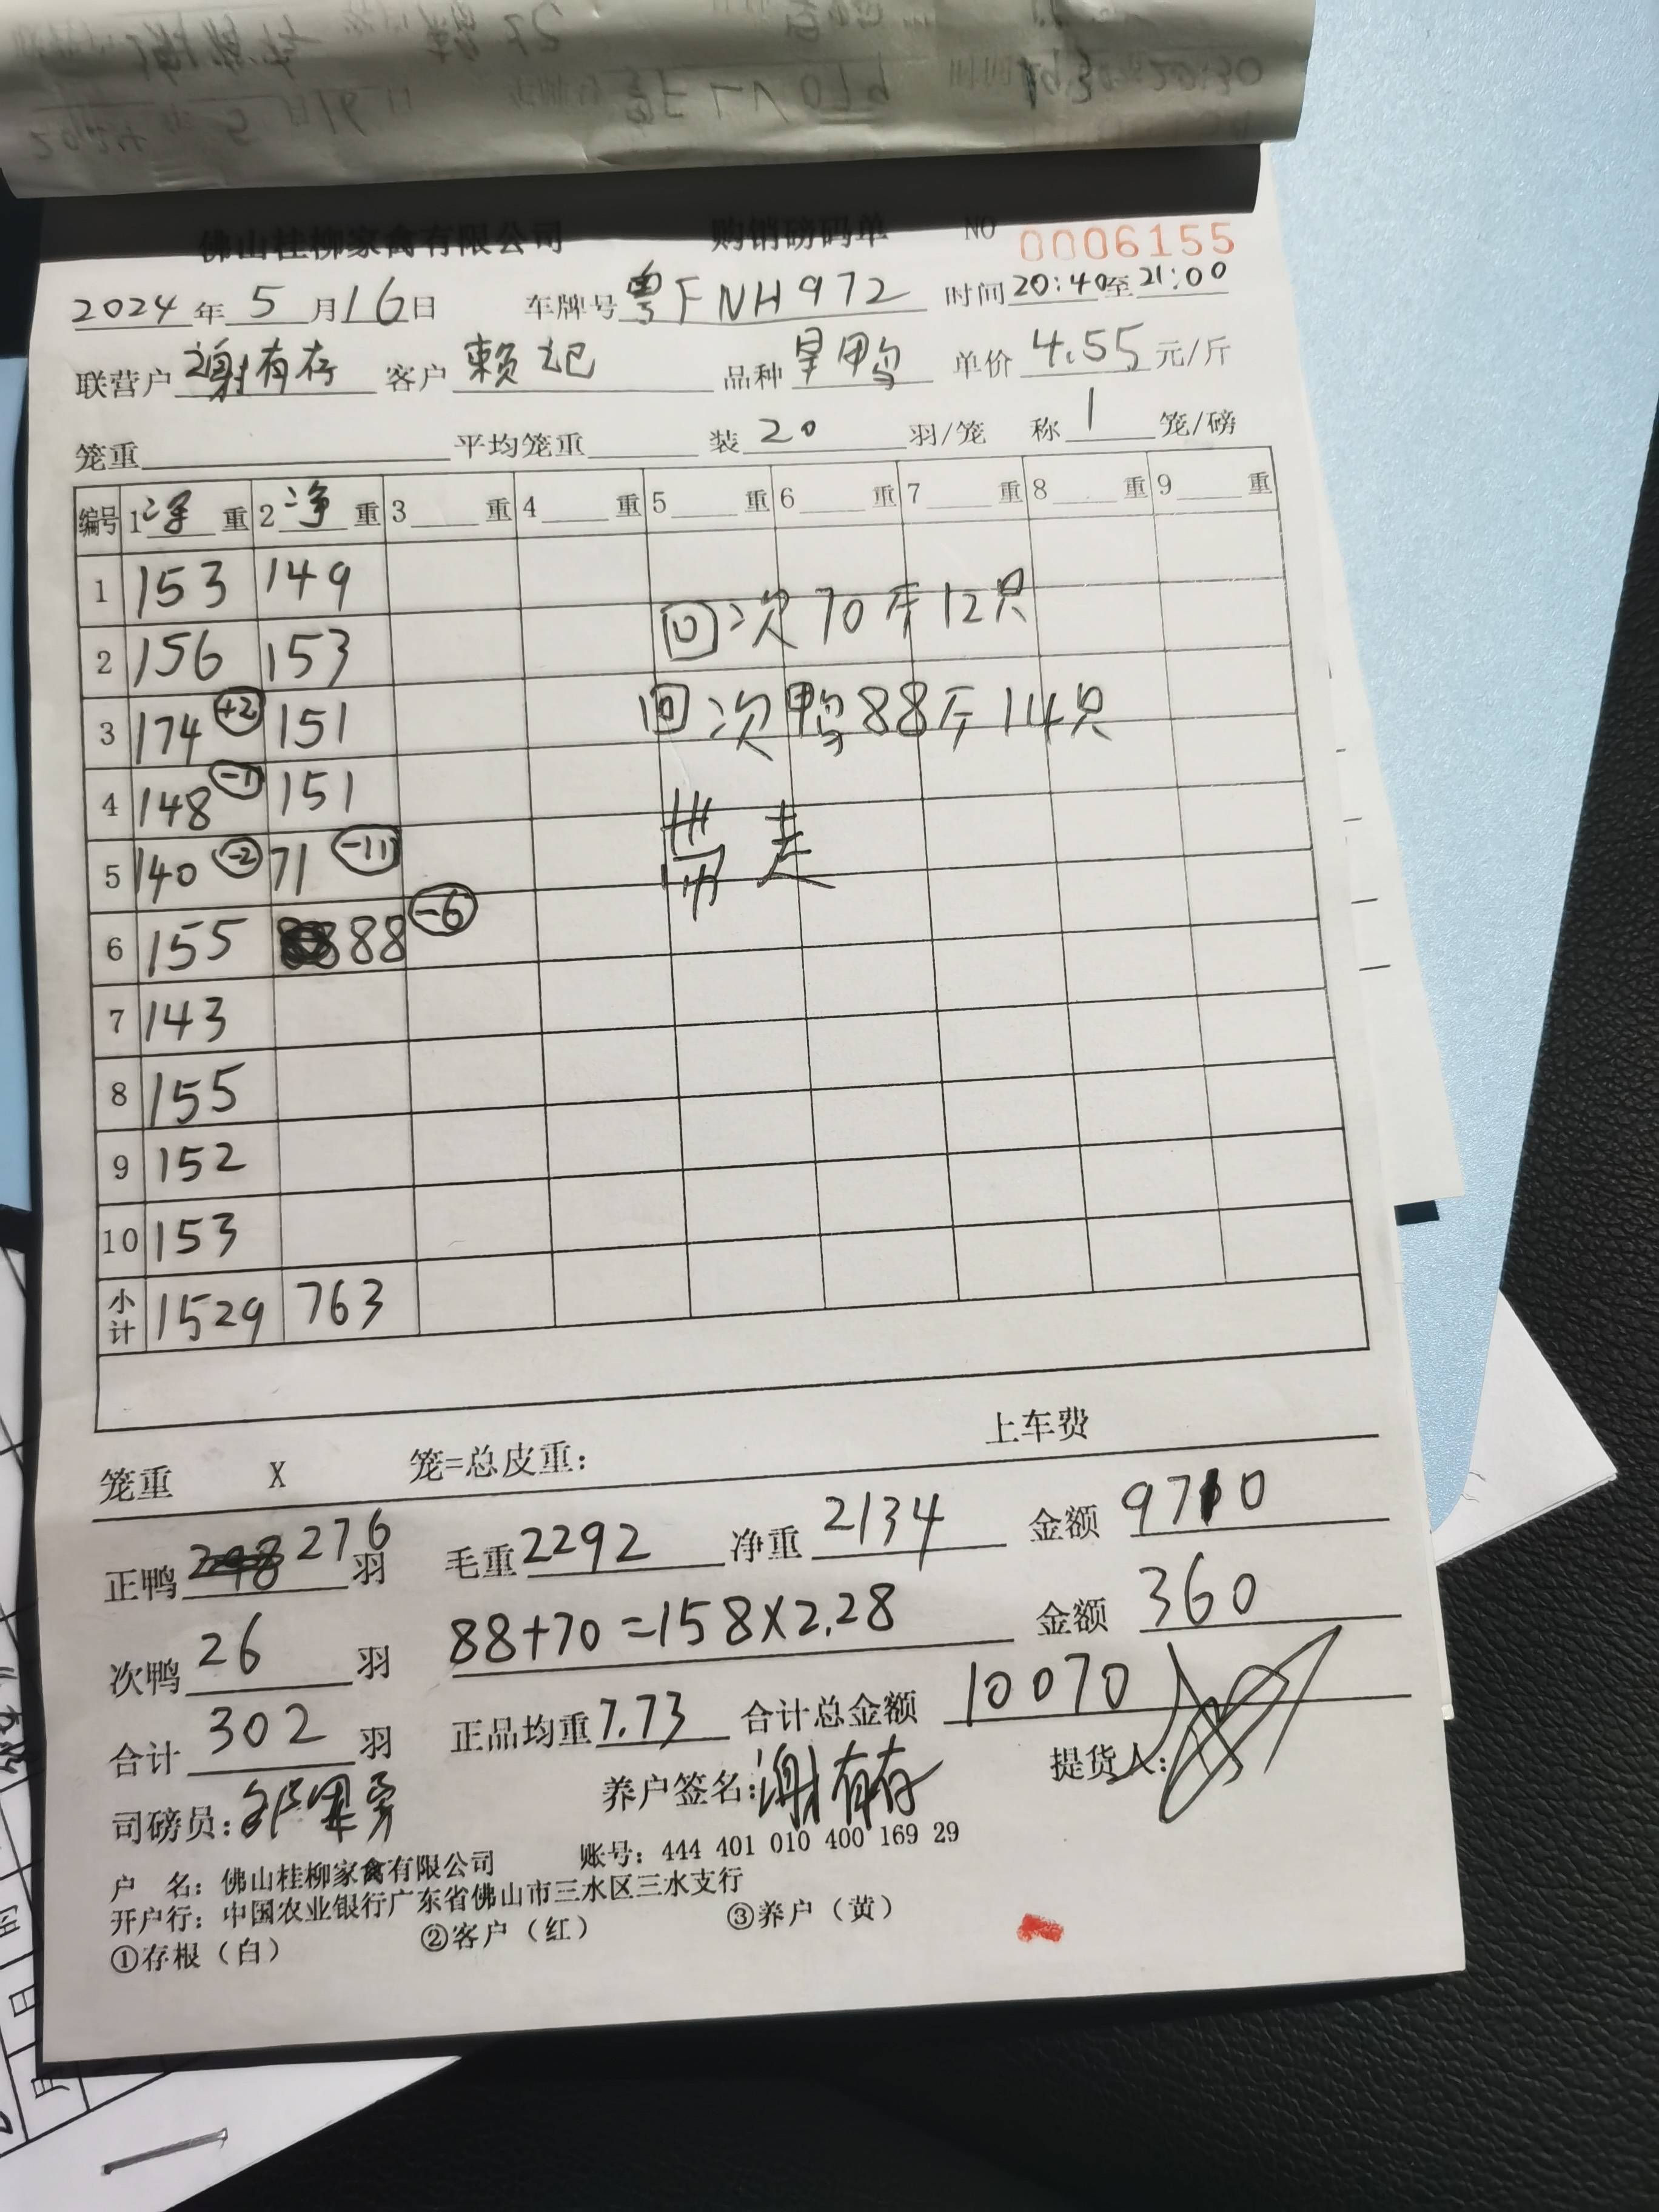 佛山桂柳家禽有限公司 购销磅码单 NO 0006155
2024年5月16日 车牌号 粤FNH972 时间20:40至21:00
联营户 谢有存 客户 赖记 品种 旱鸭 单价 4.55 元/斤
笼重 平均笼重 装 20 羽/笼 称 1 笼/磅
编号 1 净 重 2 净 重 3 重 4 重 5 重 6 重 7 重 8 重 9 重
1 153 149
回次70斤12只
2 156 153
3 174 +2 151
回次鸭88斤14只
4 148 -1 151
带走
5 140 -2 71 -11
6 155 88 -6
7 143
8 155
9 152
10 153
小计 1529 763
上车费
笼重 X 笼=总皮重:
正鸭 276 羽 毛重 2292 净重 2134 金额 9710
次鸭 26 羽 88+70=158×2.28 金额 360
合计 302 羽 正品均重 7.73 合计总金额 10070
司磅员: 养户签名:谢有存 提货人:
户 名：佛山桂柳家禽有限公司 账号：444 401 010 400 169 29
开户行：中国农业银行广东省佛山市三水区三水支行
①存根（白） ②客户（红） ③养户（黄）